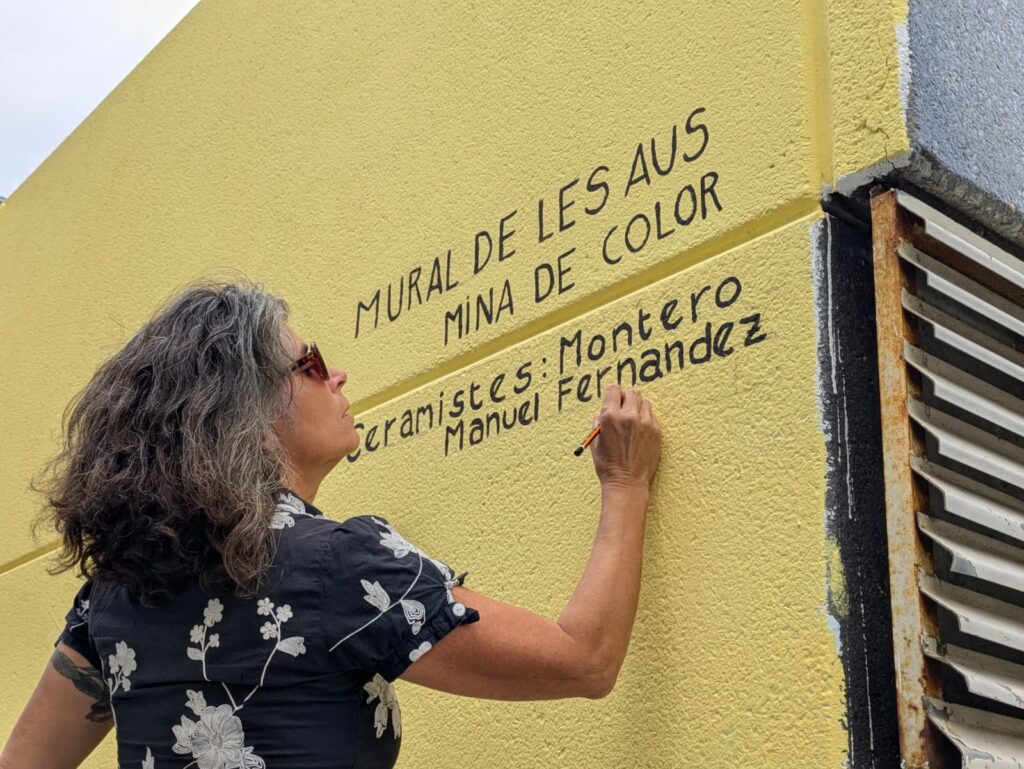 MURAL DE LES AUS
MiNA DE COLOR
ceramistes: Montero
Manuel Fernandez